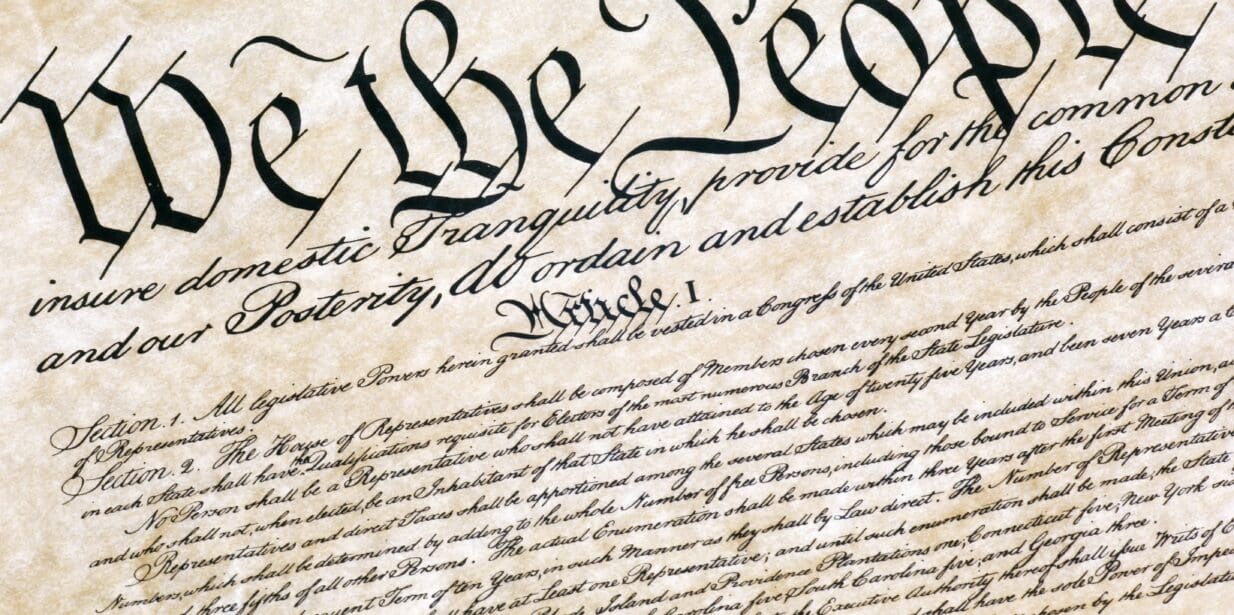 We the People
insure domestic Tranquility, provide for the common
and our Posterity, do ordain and establish this Const
Article. I.
Section. 1. All legislative Powers herein granted shall be vested in a Congress of the United States, which shall consist of a
of Representatives.
Section. 2. The House of Representatives shall be composed of Members chosen every second Year by the People of the several
in each State shall have the Qualifications requisite for Electors of the most numerous Branch of the State Legislature.
No Person shall be a Representative who shall not have attained to the Age of twenty five Years, and been seven Years a
and who shall not, when elected, be an Inhabitant of that State in which he shall be chosen.
Representatives and direct Taxes shall be apportioned among the several States which may be included within this Union, a
Numbers, which shall be determined by adding to the whole Number of free Persons, including those bound to Service for a Term of
and three fifths of all other Persons. The actual Enumeration shall be made within three Years after the first Meeting of
quent Term of ten Years, in such Manner as they shall by Law direct. The Number of Representative
have at Least one Representative; and until such enumeration shall be made, the State
Island and Providence Plantations one, Connecticut five, New York si
Carolina five, South Carolina five, and Georgia three.
the Executive Authority thereof shall issue Writs of
shall have the sole Power of Impe
by the Legislat